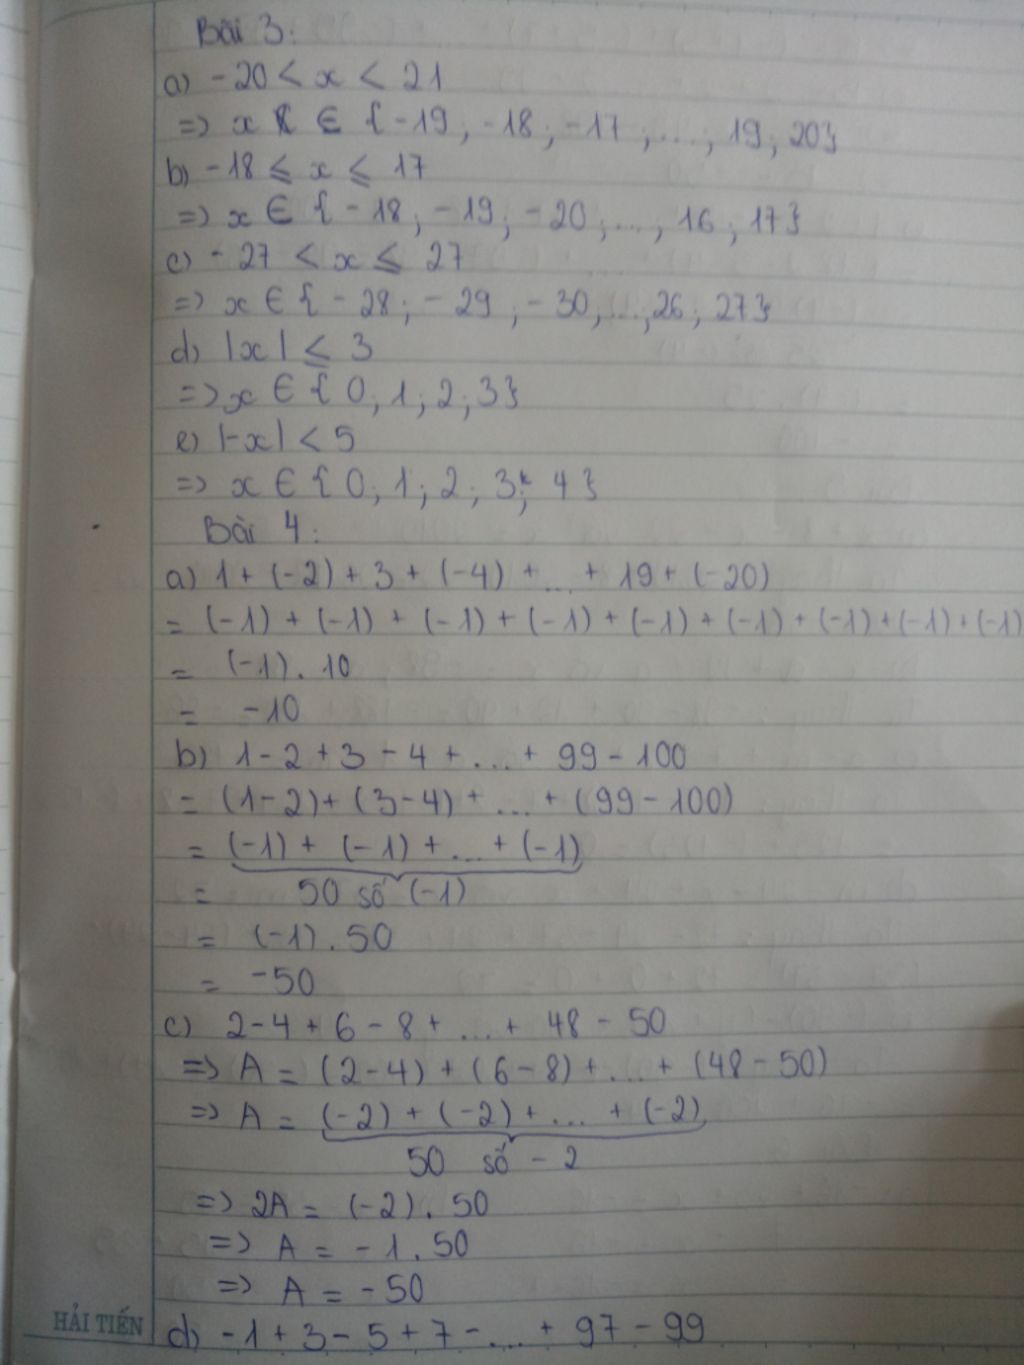 Bài 3:
a) -20 < x < 21
=> x ∈ {-19; -18; -17; ...; 19; 20}
b) -18 ≤ x ≤ 17
=> x ∈ {-18; -19; -20; ...; 16; 17}
c) -27 < x ≤ 27
=> x ∈ {-28; -29; -30; ...; 26; 27}
d) |x| ≤ 3
=> x ∈ {0; 1; 2; 3}
e) |-x| < 5
=> x ∈ {0; 1; 2; 3; 4}
Bài 4:
a) 1 + (-2) + 3 + (-4) + ... + 19 + (-20)
= (-1) + (-1) + (-1) + (-1) + (-1) + (-1) + (-1) + (-1) + (-1)
= (-1) . 10
= -10
b) 1 - 2 + 3 - 4 + ... + 99 - 100
= (1 - 2) + (3 - 4) + ... + (99 - 100)
= (-1) + (-1) + ... + (-1)
= 50 số (-1)
= (-1) . 50
= -50
c) 2 - 4 + 6 - 8 + ... + 48 - 50
=> A = (2 - 4) + (6 - 8) + ... + (48 - 50)
=> A = (-2) + (-2) + ... + (-2)
50 số -2
=> 2A = (-2) . 50
=> A = -1 . 50
=> A = -50
HẢI TIẾN
d) -1 + 3 - 5 + 7 - ... + 97 - 99